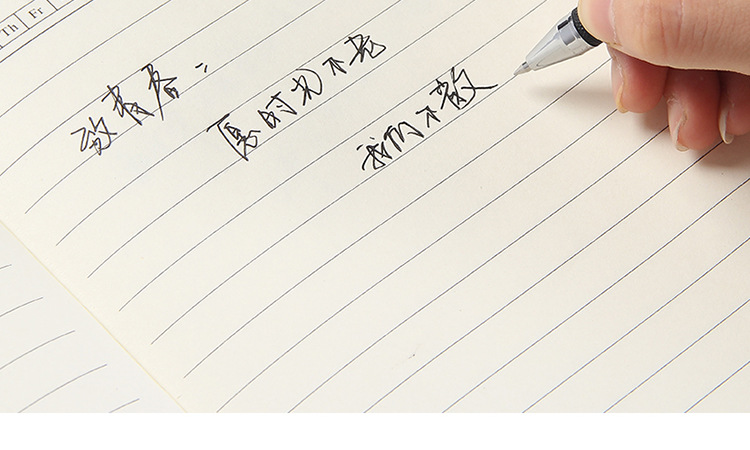 Th Fr
致青春：
愿时光不老
我们不散